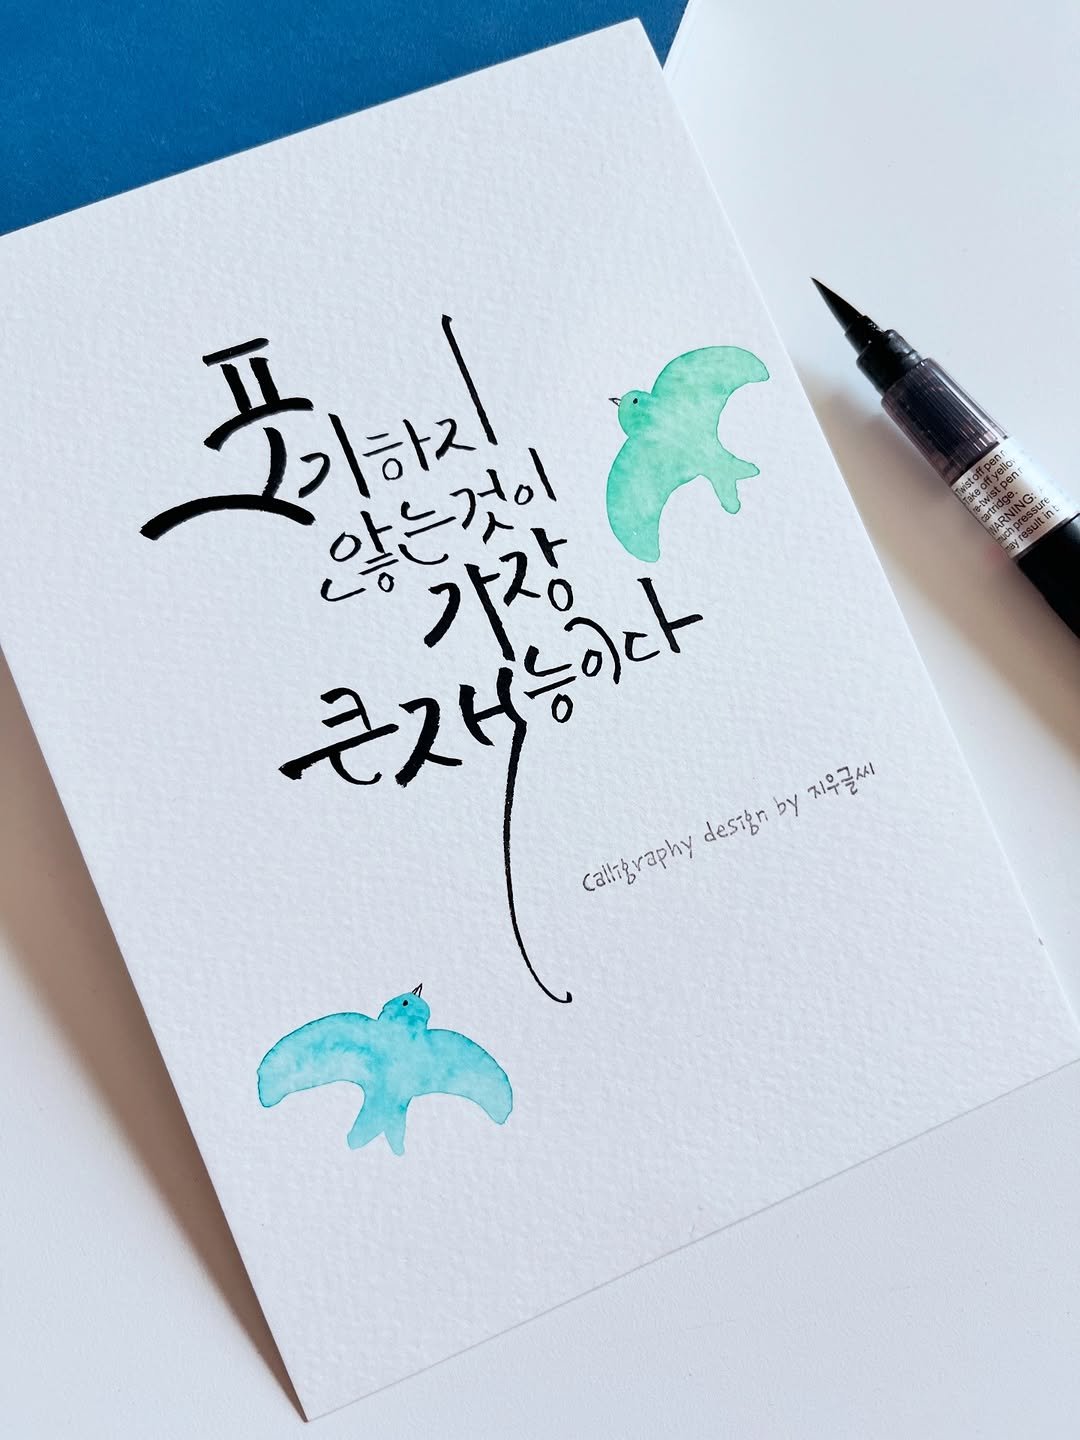 포기하지
않는것이
가장
큰재능이다
Calligraphy design by 지우글씨
Twist off pen
Take off yellow
re-twist pen
cartridge.
WARNING:
much pressure
may result in